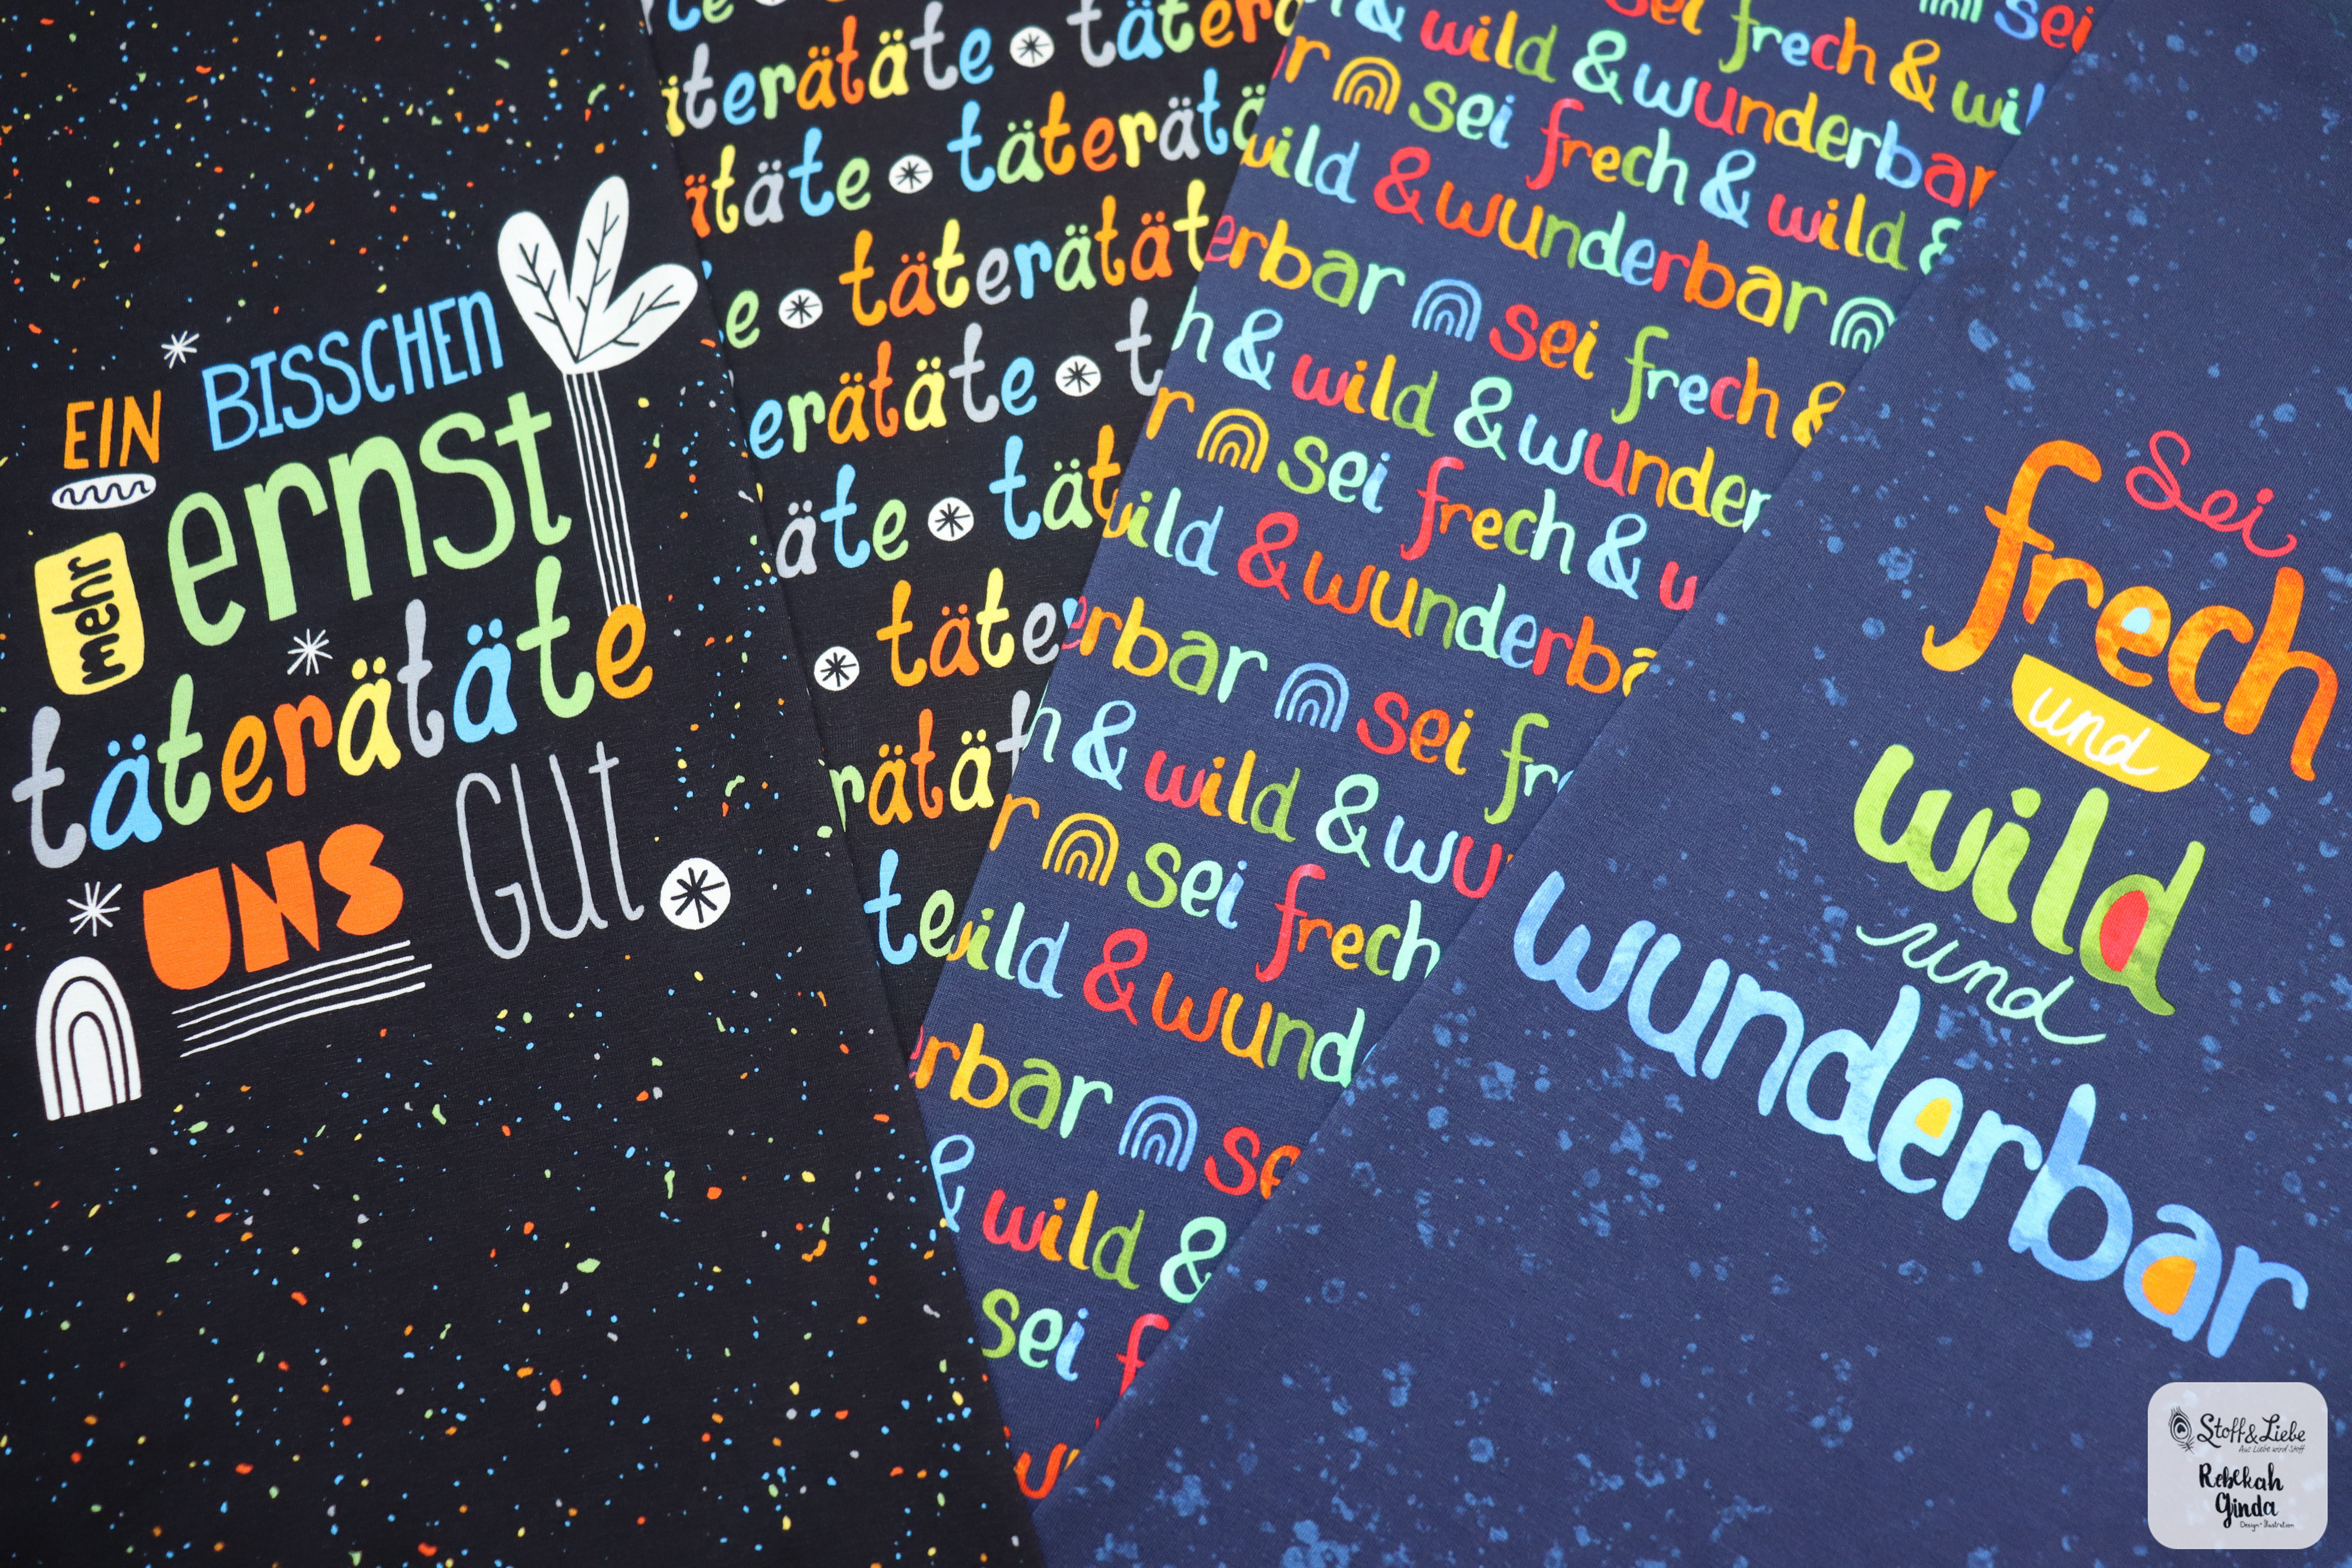 EIN BISSCHEN
mehr ernst
täterätäte
UNS GUt
te
iterätäte täterä
ätäte täterätä
e täterätät
erätäte t
äte tät
täte
rätät
te
sei
& wild & frech & wil
r sei wunderbar
wild & frech & wild &
wunderbar
erbar sei frech &
h & wild & wunder
r sei frech & w
wild & wunderba
erbar sei fre
h & wild & wu
r sei frech
wild & wund
erbar se
& wild &
sei f
w
Sei
frech
und
wild
und
wunderbar
Stoff&Liebe
Aus Liebe wird Stoff
Rebekah
Ginda
Design + Illustration